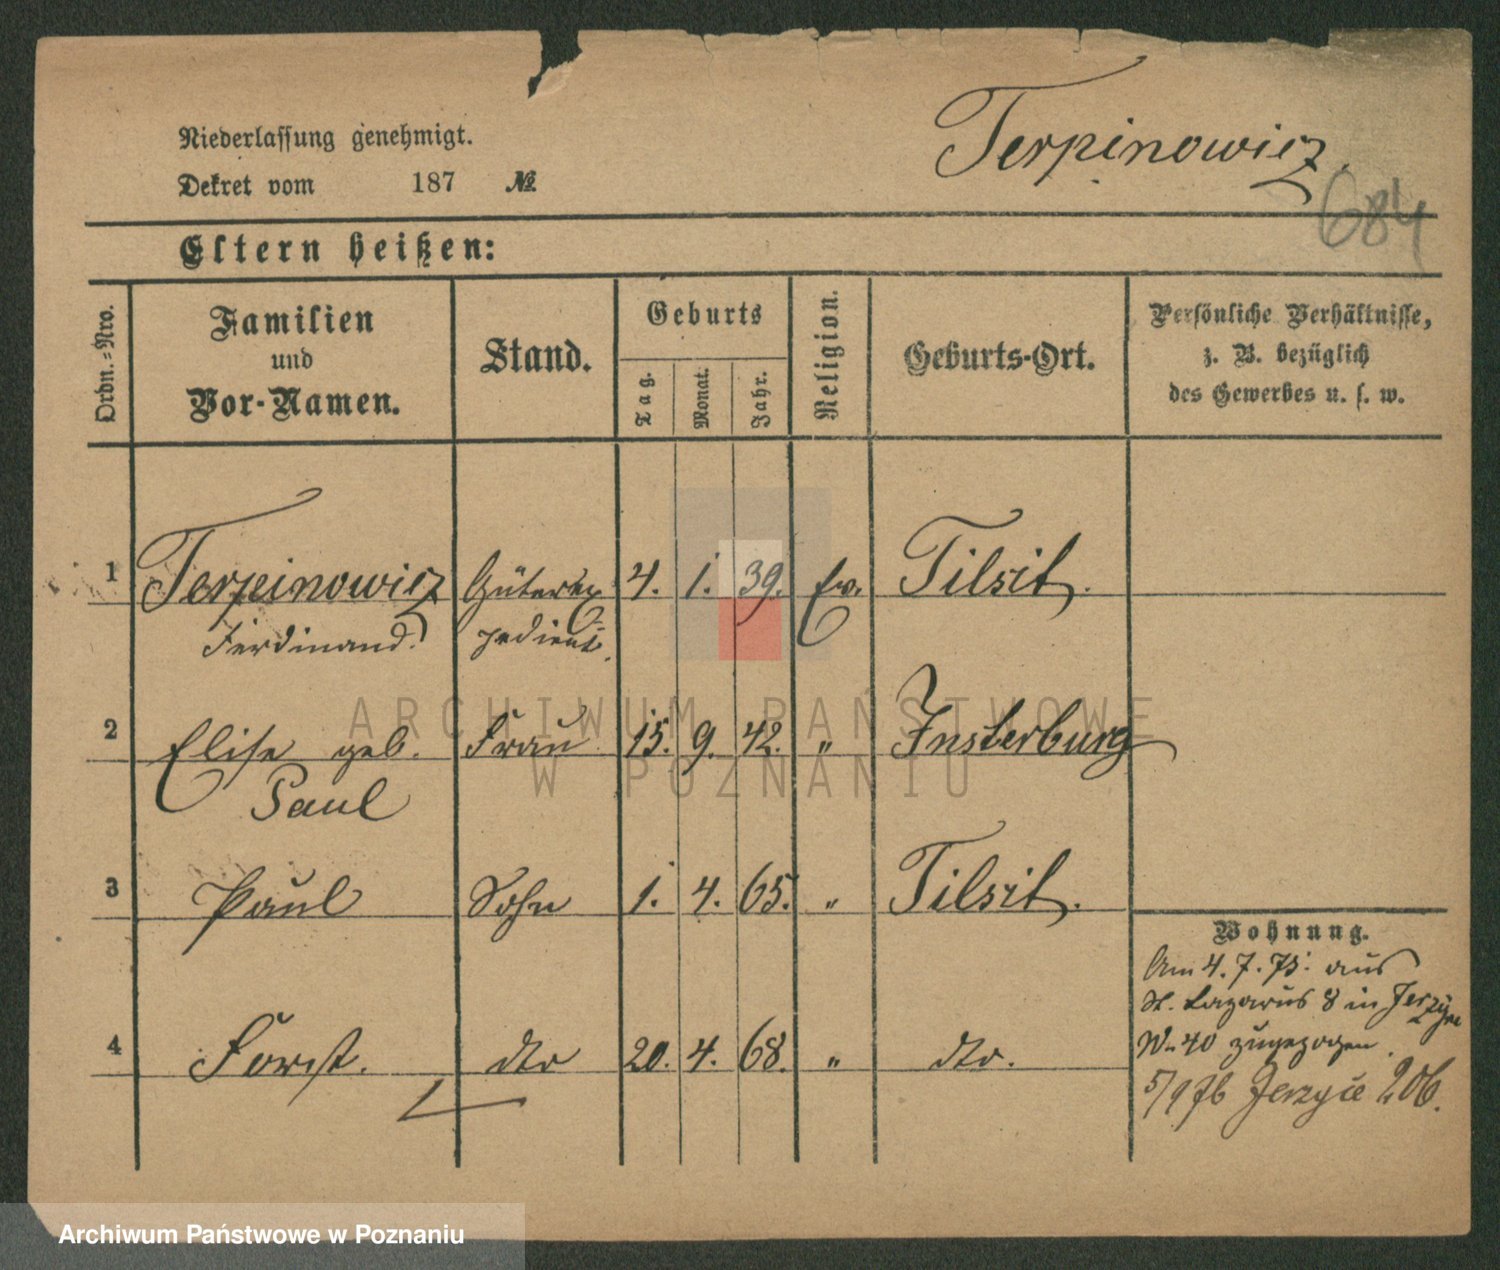 Niederlassung genehmigt.
Dekret vom 187 №
Terpinowicz.
684
Eltern heißen:
Ordn.-Nro.
Familien
und
Vor-Namen.
Stand.
Geburts
Tag.
Monat.
Jahr.
Religion.
Geburts-Ort.
Persönliche Verhältnisse,
z. B. bezüglich
des Gewerbes u. s. w.
1 Terpinowicz Güterex 4. 1. 39. Ev. Tilsit.
Ferdinand. pedient.
2 Elise geb. Frau 15. 9. 42. " Insterburg
Paul
3 Paul Sohn 1. 4. 65. " Tilsit.
4 dto 20. 4. 68. " dto.
Wohnung.
Am 4. 7. 75. aus
St. Lazarus 8 in Jerzyce
No 40 zugezogen.
5/9 76 Jerzyce 206.
ARCHIWUM PAŃSTWOWE
W POZNANIU
Archiwum Państwowe w Poznaniu